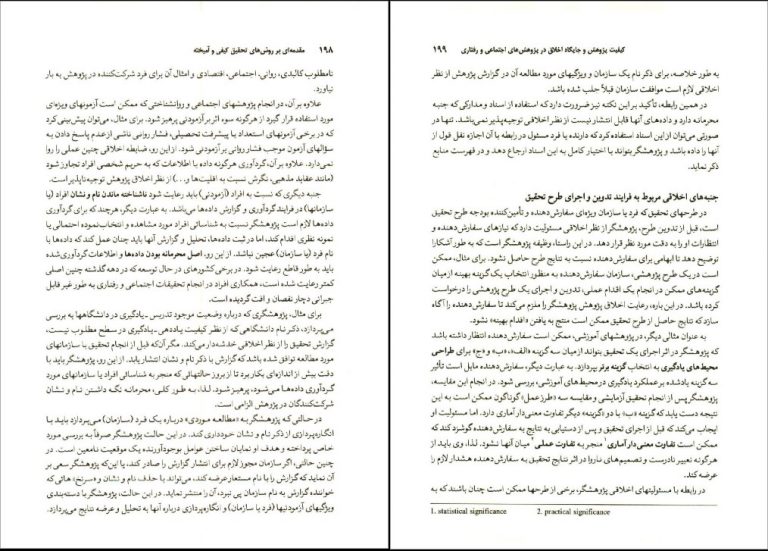 ۱۹۸ مقدمه‌ای بر روش‌های تحقیق کیفی و آمیخته
نامطلوب کالبدی، روانی، اجتماعی، اقتصادی و امثال آن برای فرد شرکت‌کننده در پژوهش به بار
نیاورد.
علاوه بر آن، در انجام پژوهشهای اجتماعی و روانشناختی که ممکن است آزمونهای ویژه‌ای
مورد استفاده قرار گیرد از هرگونه سوء اثر بر آزمودنی پرهیز شود. برای مثال، می‌توان پیش‌بینی کرد
که در برخی آزمونهای استعداد یا پیشرفت تحصیلی، فشار روانی ناشی از عدم پاسخ دادن به
سؤالهای آزمون موجب فشار روانی بر آزمودنی شود. از این رو، ضابطه اخلاقی چنین عملی را روا
نمی‌دارد. علاوه بر آن، گردآوری هرگونه داده یا اطلاعات که به حریم شخصی افراد تجاوز شود
(مانند عقاید مذهبی، نگرش نسبت به اقلیت‌ها و...) از نظر اخلاق پژوهش توجیه‌ناپذیر است.
جنبه دیگری که نسبت به افراد (آزمودنی) باید رعایت شود ناشناخته ماندن نام و نشان افراد (یا
سازمانها) در فرایند گردآوری و گزارش داده‌ها می‌باشد. به عبارت دیگر، هرچند که برای گردآوری
داده‌ها لازم است پژوهشگر نسبت به شناسائی افراد مورد مشاهده و انتخاب نمونه احتمالی یا
نمونه نظری اقدام کند، اما در ثبت داده‌ها، تحلیل و گزارش آنها باید چنان عمل کند که داده‌ها با
نام فرد (یا سازمان) عجین نباشد. از این رو، اصل محرمانه بودن داده‌ها و اطلاعات گردآوری‌شده
باید به طور قاطع رعایت شود. در برخی کشورهای در حال توسعه که در دهه گذشته چنین اصلی
کمتر رعایت شده است، همکاری افراد در انجام تحقیقات اجتماعی و رفتاری به طور غیر قابل
جبرانی دچار نقصان و افت گردیده است.
برای مثال، پژوهشگری که درباره وضعیت موجود تدریس ـ یادگیری در دانشگاهها به بررسی
می‌پردازد، ذکر نام دانشگاهی که از نظر کیفیت یاددهی ـ یادگیری در سطح مطلوب نیست،
گزارش تحقیق را از نظر اخلاقی خدشه‌دار می‌کند. مگر آن‌که قبل از انجام تحقیق با سازمانهای
مورد مطالعه توافق شده باشد که گزارش با ذکر نام و نشان انتشار یابد. از این رو، پژوهشگر باید با
دقت پیش از اندازه‌ای بکار برد تا از بروز حالتهائی که منجر به شناسائی افراد یا سازمانهای مورد
گردآوری داده‌ها می‌شود، پرهیز شود. لذا، به طور کلی، محرمانه نگه داشتن نام و نشان
شرکت‌کنندگان در پژوهش الزامی است.
در حالتی که پژوهشگر به «مطالعه موردی» درباره یک فرد (سازمان) می‌پردازد باید با
انگاره‌پردازی از ذکر نام و نشان خودداری کند. در این حالت پژوهشگر صرفاً به بررسی مورد
خاص پرداخته و هدف او نمایان ساختن عوامل بوجودآورنده یک موقعیت نامعین است. در
چنین حالتی، اگر سازمان مجوز لازم برای انتشار گزارش را صادر کند، یا این‌که پژوهشگر سعی بر
آن نماید که گزارش را با نام مستعار عرضه کند، می‌تواند با حذف نام و نشان و «سرنخ» هائی که
خواننده گزارش به نام سازمان پی نبرد، آن را منتشر نماید. در این حالت، پژوهشگر با دسته‌بندی
ویژگیهای آزمودنیها (فرد یا سازمان) و انگاره‌پردازی درباره آنها به تحلیل و عرضه نتایج می‌پردازد.
کیفیت پژوهش و جایگاه اخلاق در پژوهش‌های اجتماعی و رفتاری ۱۹۹
به طور خلاصه، برای ذکر نام یک سازمان و ویژگیهای مورد مطالعه آن در گزارش پژوهش از نظر
اخلاقی لازم است موافقت سازمان قبلاً جلب شده باشد.
در همین رابطه، تأکید بر این نکته نیز ضرورت دارد که استفاده از اسناد و مدارکی که جنبه
محرمانه دارد و داده‌های آنها قابل انتشار نیست از نظر اخلاقی توجیه‌پذیر نمی‌باشد. تنها در
صورتی می‌توان از این اسناد استفاده کرد که دارنده یا فرد مسئول در رابطه با آن اجازه نقل قول از
آنها را داده باشد و پژوهشگر بتواند با اختیار کامل به این اسناد ارجاع دهد و در فهرست منابع
ذکر نماید.
جنبه‌های اخلاقی مربوط به فرایند تدوین و اجرای طرح تحقیق
در طرحهای تحقیق که فرد یا سازمان ویژه‌ای سفارش‌دهنده و تأمین‌کننده بودجه طرح تحقیق
است، قبل از تدوین طرح، پژوهشگر از نظر اخلاقی مسئولیت دارد که نیازهای سفارش‌دهنده و
انتظارات او را به دقت مورد نظر قرار دهد. در این راستا، وظیفه پژوهشگر است که به طور آشکارا
توضیح دهد تا ابهامی برای سفارش‌دهنده نسبت به نتایج طرح حاصل نشود. برای مثال، ممکن
است در یک طرح پژوهشی، سازمان سفارش‌دهنده به منظور انتخاب یک گزینه بهینه از میان
گزینه‌های ممکن در انجام یک اقدام عملی، تدوین و اجرای یک طرح پژوهشی را درخواست
کرده باشد. در این باره، رعایت اخلاق پژوهش پژوهشگر را ملزم می‌کند تا سفارش‌دهنده را آگاه
سازد که نتایج حاصل از طرح تحقیق ممکن است منتج به یافتن «اقدام بهینه» نشود.
به عنوان مثالی دیگر، در پژوهشهای آموزشی، ممکن است سفارش‌دهنده انتظار داشته باشد
که پژوهشگر در اثر اجرای یک تحقیق بتواند از میان سه گزینه «الف»، «ب» و «ج» برای طراحی
محیط‌های یادگیری به انتخاب گزینه برتر بپردازد. به عبارت دیگر، سفارش‌دهنده مایل است تأثیر
سه گزینه یادشده بر عملکرد یادگیری در محیط‌های آموزشی، بررسی شود. در انجام این مقایسه،
پژوهشگر پس از انجام تحقیق آزمایشی و مقایسه سه «طرز عمل» گوناگون ممکن است به این
نتیجه دست یابد که گزینه «ب» با دو «گزینه» دیگر تفاوت معنی‌دار آماری دارد. اما مسئولیت او
ایجاب می‌کند که قبل از اجرای تحقیق و پس از دستیابی به نتایج به سفارش‌دهنده گوشزد کند که
ممکن است تفاوت معنی‌دار آماری۱ منجر به تفاوت عملی۲ میان آنها نشود. لذا، وی باید از
هرگونه تعبیر نادرست و تصمیم‌های ناروا در اثر نتایج تحقیق به سفارش‌دهنده هشدار لازم را
عرضه کند.
در رابطه با مسئولیتهای اخلاقی پژوهشگر، برخی از طرحها ممکن است چنان باشند که به
1. statistical significance 2. practical significance